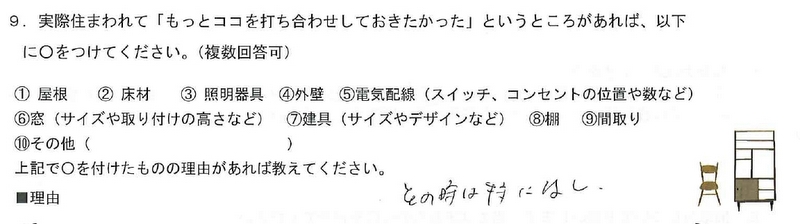 ９．実際住まわれて「もっとココを打ち合わせしておきたかった」というところがあれば、以下
に○をつけてください。（複数回答可）
① 屋根　② 床材　③ 照明器具　④外壁　⑤電気配線（スイッチ、コンセントの位置や数など）
⑥窓（サイズや取り付けの高さなど）　⑦建具（サイズやデザインなど）　⑧棚　⑨間取り
⑩その他（　　　　　　　　　　）
上記で○を付けたものの理由があれば教えてください。
■理由　その時は特になし．